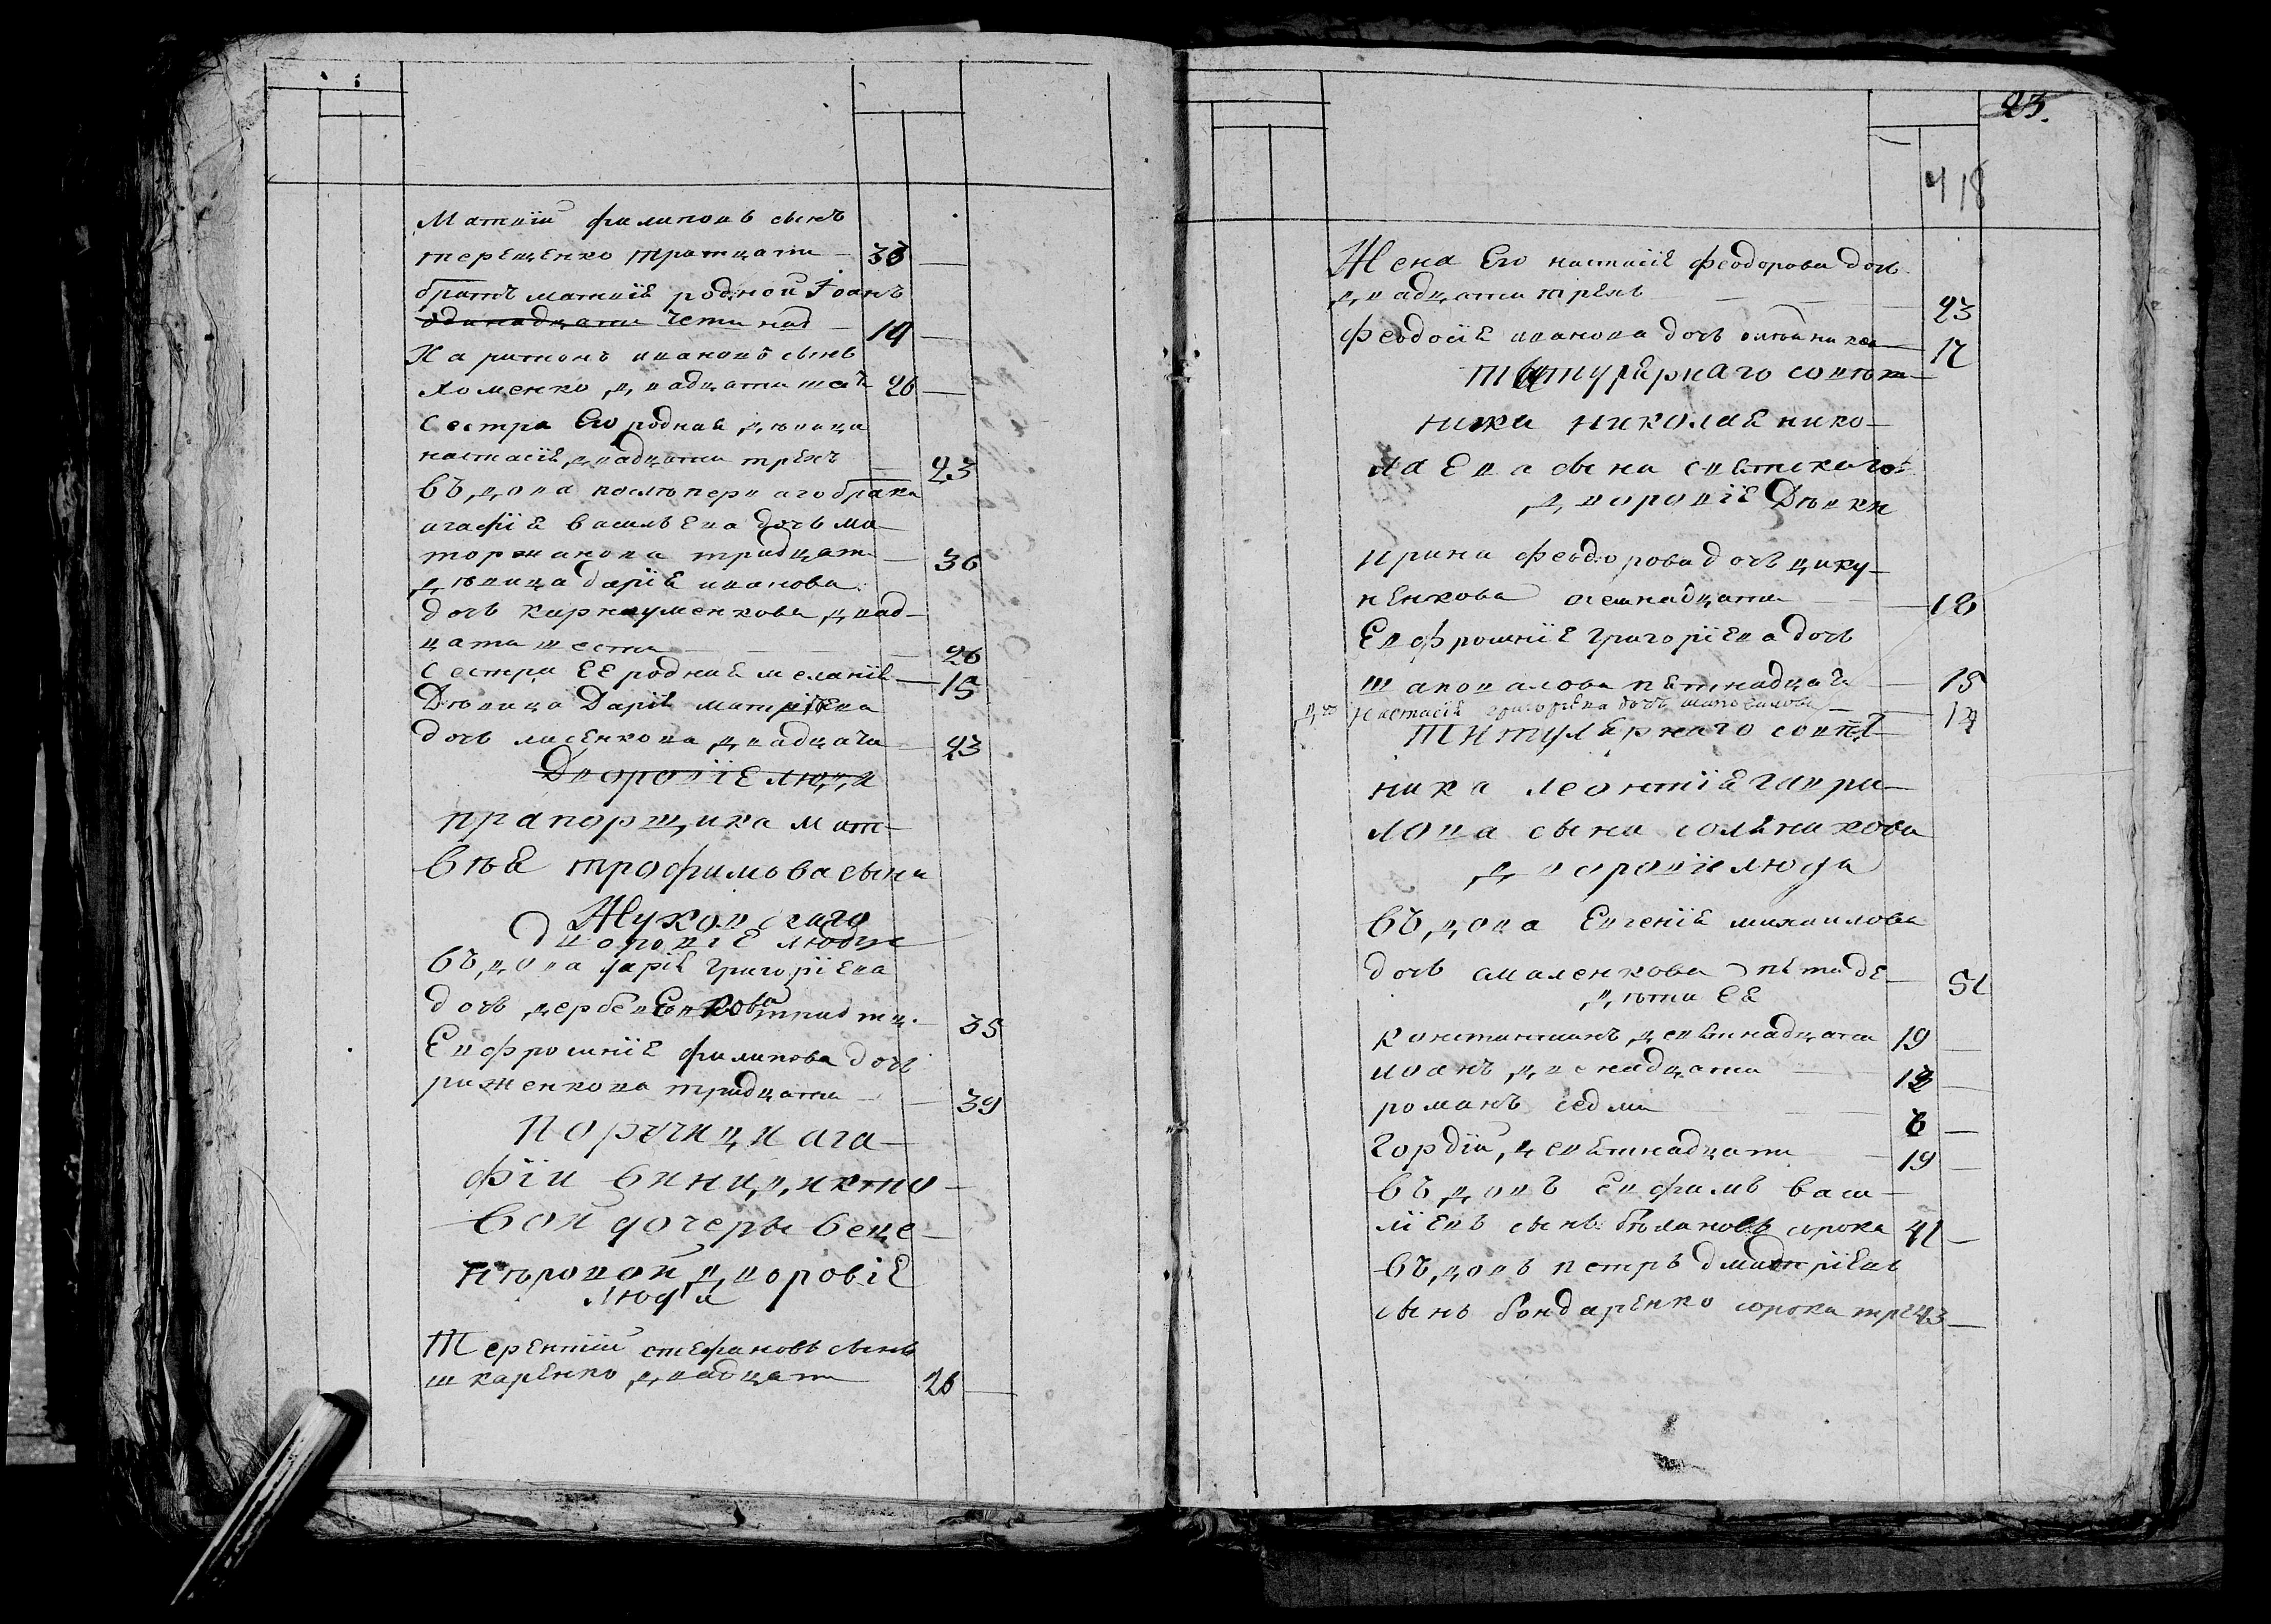 Матвій филиповъ сынъ
терещенко тратцати 33
братъ матвія родной Іоанъ
одинадцати четинад 14
Харитонъ ивановъ сынъ
хоменко двадцати шест 26
Сестра Его родная дѣвица
настасія двадцати трехъ 23
въдова послѣ первагобрака
агафія васильева дочь ма-
торжанова тридцат 36
дѣвица дарія иванова
дочь карнауменкова двад-
цати шести 26
Сестра ЕЕ родная меланія 15
Дѣвица Дарія матвіева
дочь лисенкова двадцати 23
Дворовіе люди
прапорщика мат-
вѣя трофимова сына
Жуковскаго
дворовіе люди
въдова дарія григоріева
дочь 35
Евфросинія филипова дочь
риженкова тридцати 39
Поручици ага-
фіи бинидикто-
вой дочеры беце-
нѣровой дворовіе
люди
Терентій стефановъ сынъ
шкаренко двадцати 26
23.
418
Жена Его настасія феодорова дочь
двадцати трехъ 23
Феодосія иванова дочь 17
титулярнаго совѣт-
ника николая нико-
лаева сына свѣтскаго
дворовіе Дѣвки
ирина феодорова дочь цику-
ненкова осемнадцати 18
Евфросинія григоріева дочь
шаповалова пятнадцат 15
настасія григоріева дочь шаповалова 14
титулярнаго совѣт-
ника леонтія гаври-
лова сына солянікова
дворовіе люди
въдова Евгенія михаилова
дочь смаленкова пятиде- 51
дѣти ЕЯ
константинъ девятнадцати 19
иоанъ двенадцати 12
романъ седми 8
гордій девятнадцати 19
въдовъ евфимъ васи-
ліевъ сынъ бѣлановъ сорока 41
въдовъ петръ дмитріевъ
сынъ бондаренко сорока трех 43